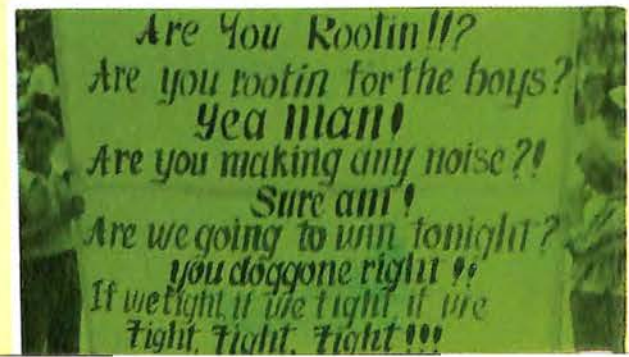 Are You Rootin!!?
Are you rootin for the boys?
Yea Man!
Are you making any noise?!
Sure am!
Are we going to win tonight?
you doggone right!!
If we fight, if we fight if we
Fight, Fight, Fight!!!